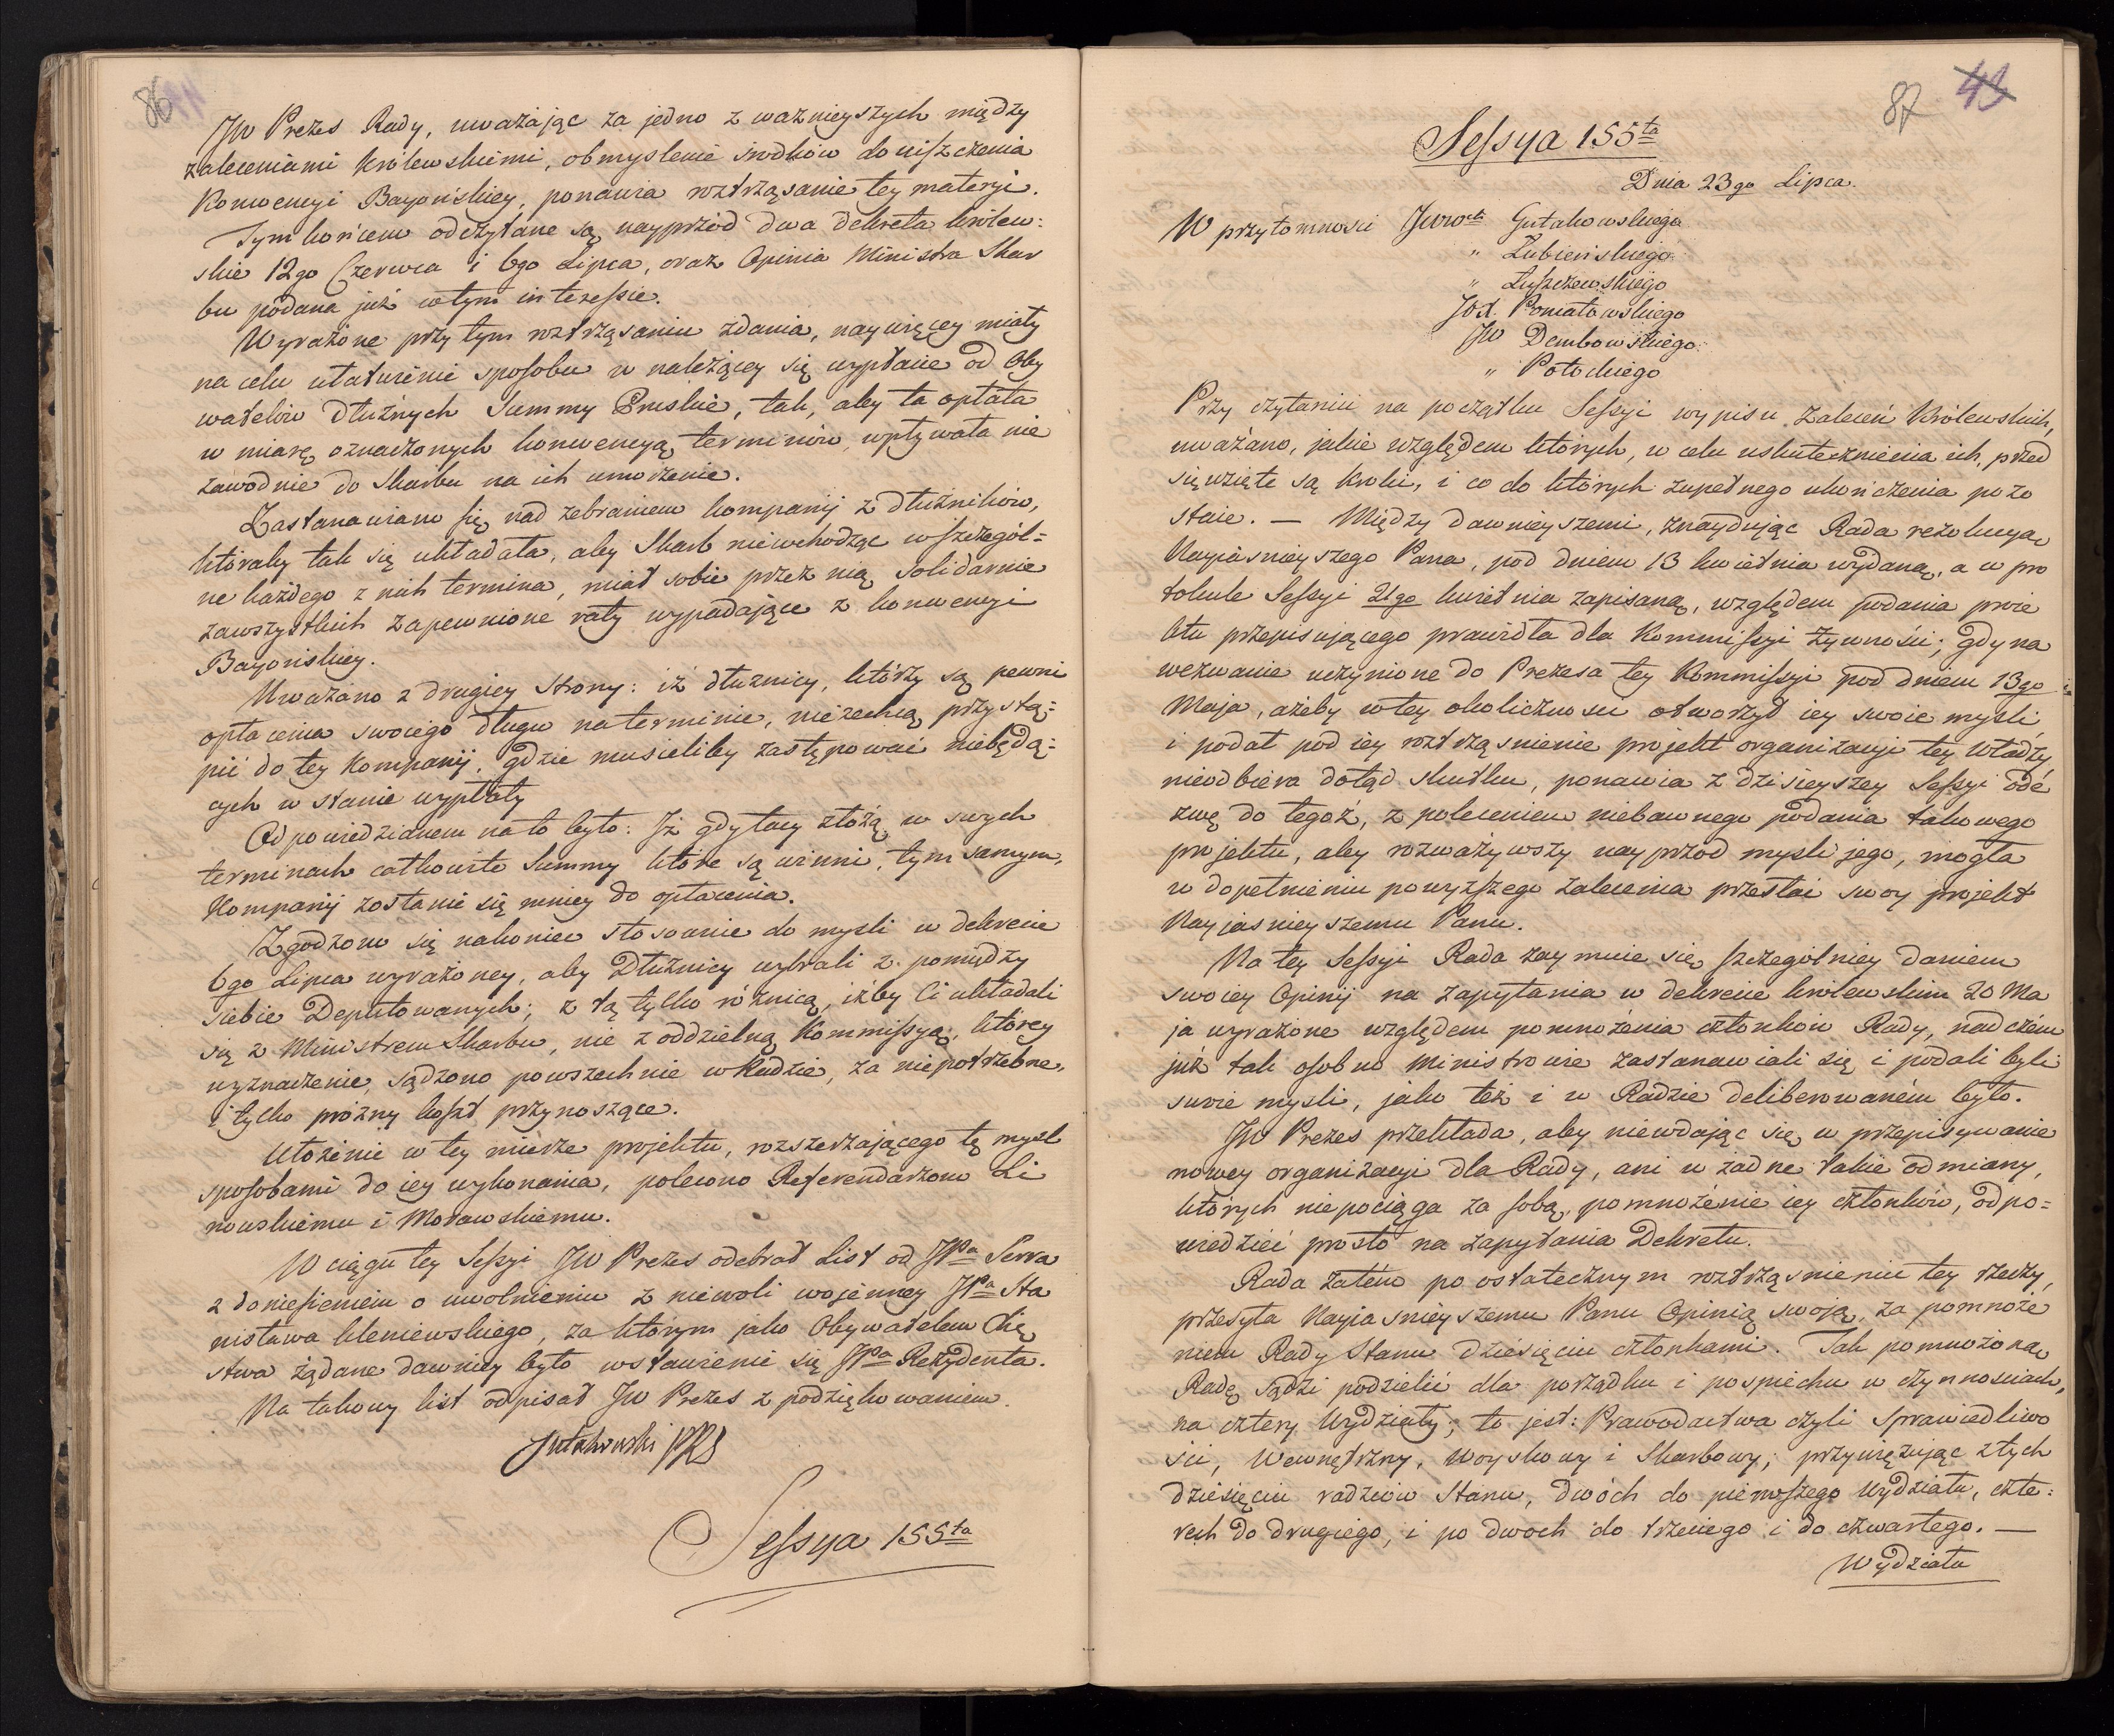 86
JW Prezes Rady, uważając za jedno z ważnieyszych między
zaleceniami Królewskiemi, obmyslenie środków do uiszczenia
Konwencyi Bayońskiey, ponawia roztrząsanie tey materyi.
Tym końcem odczytane są nayprzód dwa dekreta królew:
skie 12go Czerwca i 6go Lipca, oraz Opinia Ministra Skar
bu podana już w tym interessie.
Wyrażone przy tym roztrząsaniu zdania, naywięcey miały
na celu ułatwienie sposobu w należącey się wypłacie od Oby
watelów dłużnych Summy Pruskie, tak, aby ta opłata
w miarę oznaczonych konwencyą terminów, wpływała nie
zawodnie do Skarbu na ich umorzenie.
Zastanawiano się nad zebraniem kompanij z dłużników,
któraby tak się układała, aby Skarb niewchodząc w szczegól=
ne każdego z nich termina, miał sobie przez nią solidarnie
za wszystkich zapewnione raty wypadające z konwencyi
Bayońskiey.
Uważano z drugiey strony: iż dłużnicy, którzy są pewni
opłacenia swoiego długu na terminie, niezechcą przystą=
pić do tey Kompanij, gdzie musieliby zastępować niebędą=
cych w stanie wypłaty
Odpowiedzianem na to było: Iż gdy tacy złożą w swych
terminach całkowite Summy które są winni, tym samym,
Kompanij zostanie się mniey do opłacenia.
Zgodzono się nakoniec stosownie do mysli w dekrecie
6go Lipca wyrażoney, aby Dłużnicy wybrali z pomiędzy
siebie Deputowanych; z tą tylko różnicą, iżby Ci układali
się z Ministrem Skarbu, nie z oddzielną Kommissyą, którey
wyznaczenie, sądzono powszechnie w Radzie, za niepotrzebne,
i tylko próżny koszt przynoszące.
Ułożenie w tey mierze projektu, rozszerzającego tę mysl
sposobami do iey wykonania, polecono Referendarzom Li
nowskiemu i Morawskiemu.
W ciągu tey Sessyi JW Prezes odebrał List od JPa Serra
z doniesieniem o uwolnieniu z niewoli wojenney JPa Sta
nisława Kleniewskiego, za którym jako Obywatelem Xię
stwa żądane dawniey było wstawienie się JPa Rezydenta.
Na takowy list odpisał JW Prezes z podziękowaniem.
Gutakowski PRS
Sessya 155ta
87
Sessya 155ta
Dnia 23go Lipca.
W przytomnosci JWWch Gutakowskiego
" Łubieńskiego
" Łuszczewskiego
JOX. Poniatowskiego
JW Dembowskiego
" Potockiego
Przy czytaniu na początku Sessyi wypisu zaleceń Królewskich,
uważano, jakie względem których, w celu uskutecznienia ich, przed
sięwzięte są kroki, i co do których zupełnego ukończenia pozo
staie. — Między dawnieyszemi, znaydując Rada rezolucyą
Nayiasnieyszego Pana, pod dniem 13 kwietnia wydaną, a w pro
tokule Sessyi 21go kwietnia zapisaną, względem podania proie
ktu przepisującego prawidła dla Kommissyi Żywnośći; gdy na
wezwanie uczynione do Prezesa tey Kommissyi pod dniem 13go
Maja, ażeby w tey okolicznosci otworzył iey swoie mysli
i podał pod iey roztrząsnienie projekt organizacyi tey Władzy
nieodbiera dotąd skutku, ponawia z dzisieyszey Sessyi ode
zwę do tegoż, z poleceniem niebawnego podania takowego
projektu, aby rozważywszy nayprzod mysli jego, mogła
w dopełnieniu powyższego zalecenia przesłać swoy projekt
Nayjasnieyszemu Panu.
Na tey Sessyi Rada zaymuie się szczególniey daniem
swoiey Opinij na zapytania w dekrecie królewskim 20 Ma
ja wyrażone względem pomnożenia członków Rady, nad czém
już tak osobno Ministrowie zastanawiali się i podali byli
swoie mysli, jako też i w Radzie deliberowaném było.
JW Prezes przekłada, aby niewdając się w przepisywanie
nowey organizacyi dla Rady, ani w żadne takie odmiany,
których niepociąga za sobą, pomnożenie iey członków, odpo=
wiedzieć prosto na zapytania Dekretu.
Rada zatém po ostatecznym roztrząsnieniu tey rzeczy,
przesyła Nayiasnieyszemu Panu Opinią swoją, za pomnoże
niem Rady Stanu dziesięciu członkami. Tak pomnożoną
Radę sądzi podzielić dla porządku i pospiechu w czynnosciach,
na cztery Wydziały; to jest: Prawodactwa czyli Sprawiedliwo
ści, Wewnętrzny, Woyskowy i Skarbowy; przywięzując z tych
dziesięciu radzców Stanu, dwóch do pierwszego Wydziału, czte:
rech do drugiego, i po dwoch do trzeciego i do czwartego. —
Wydziału